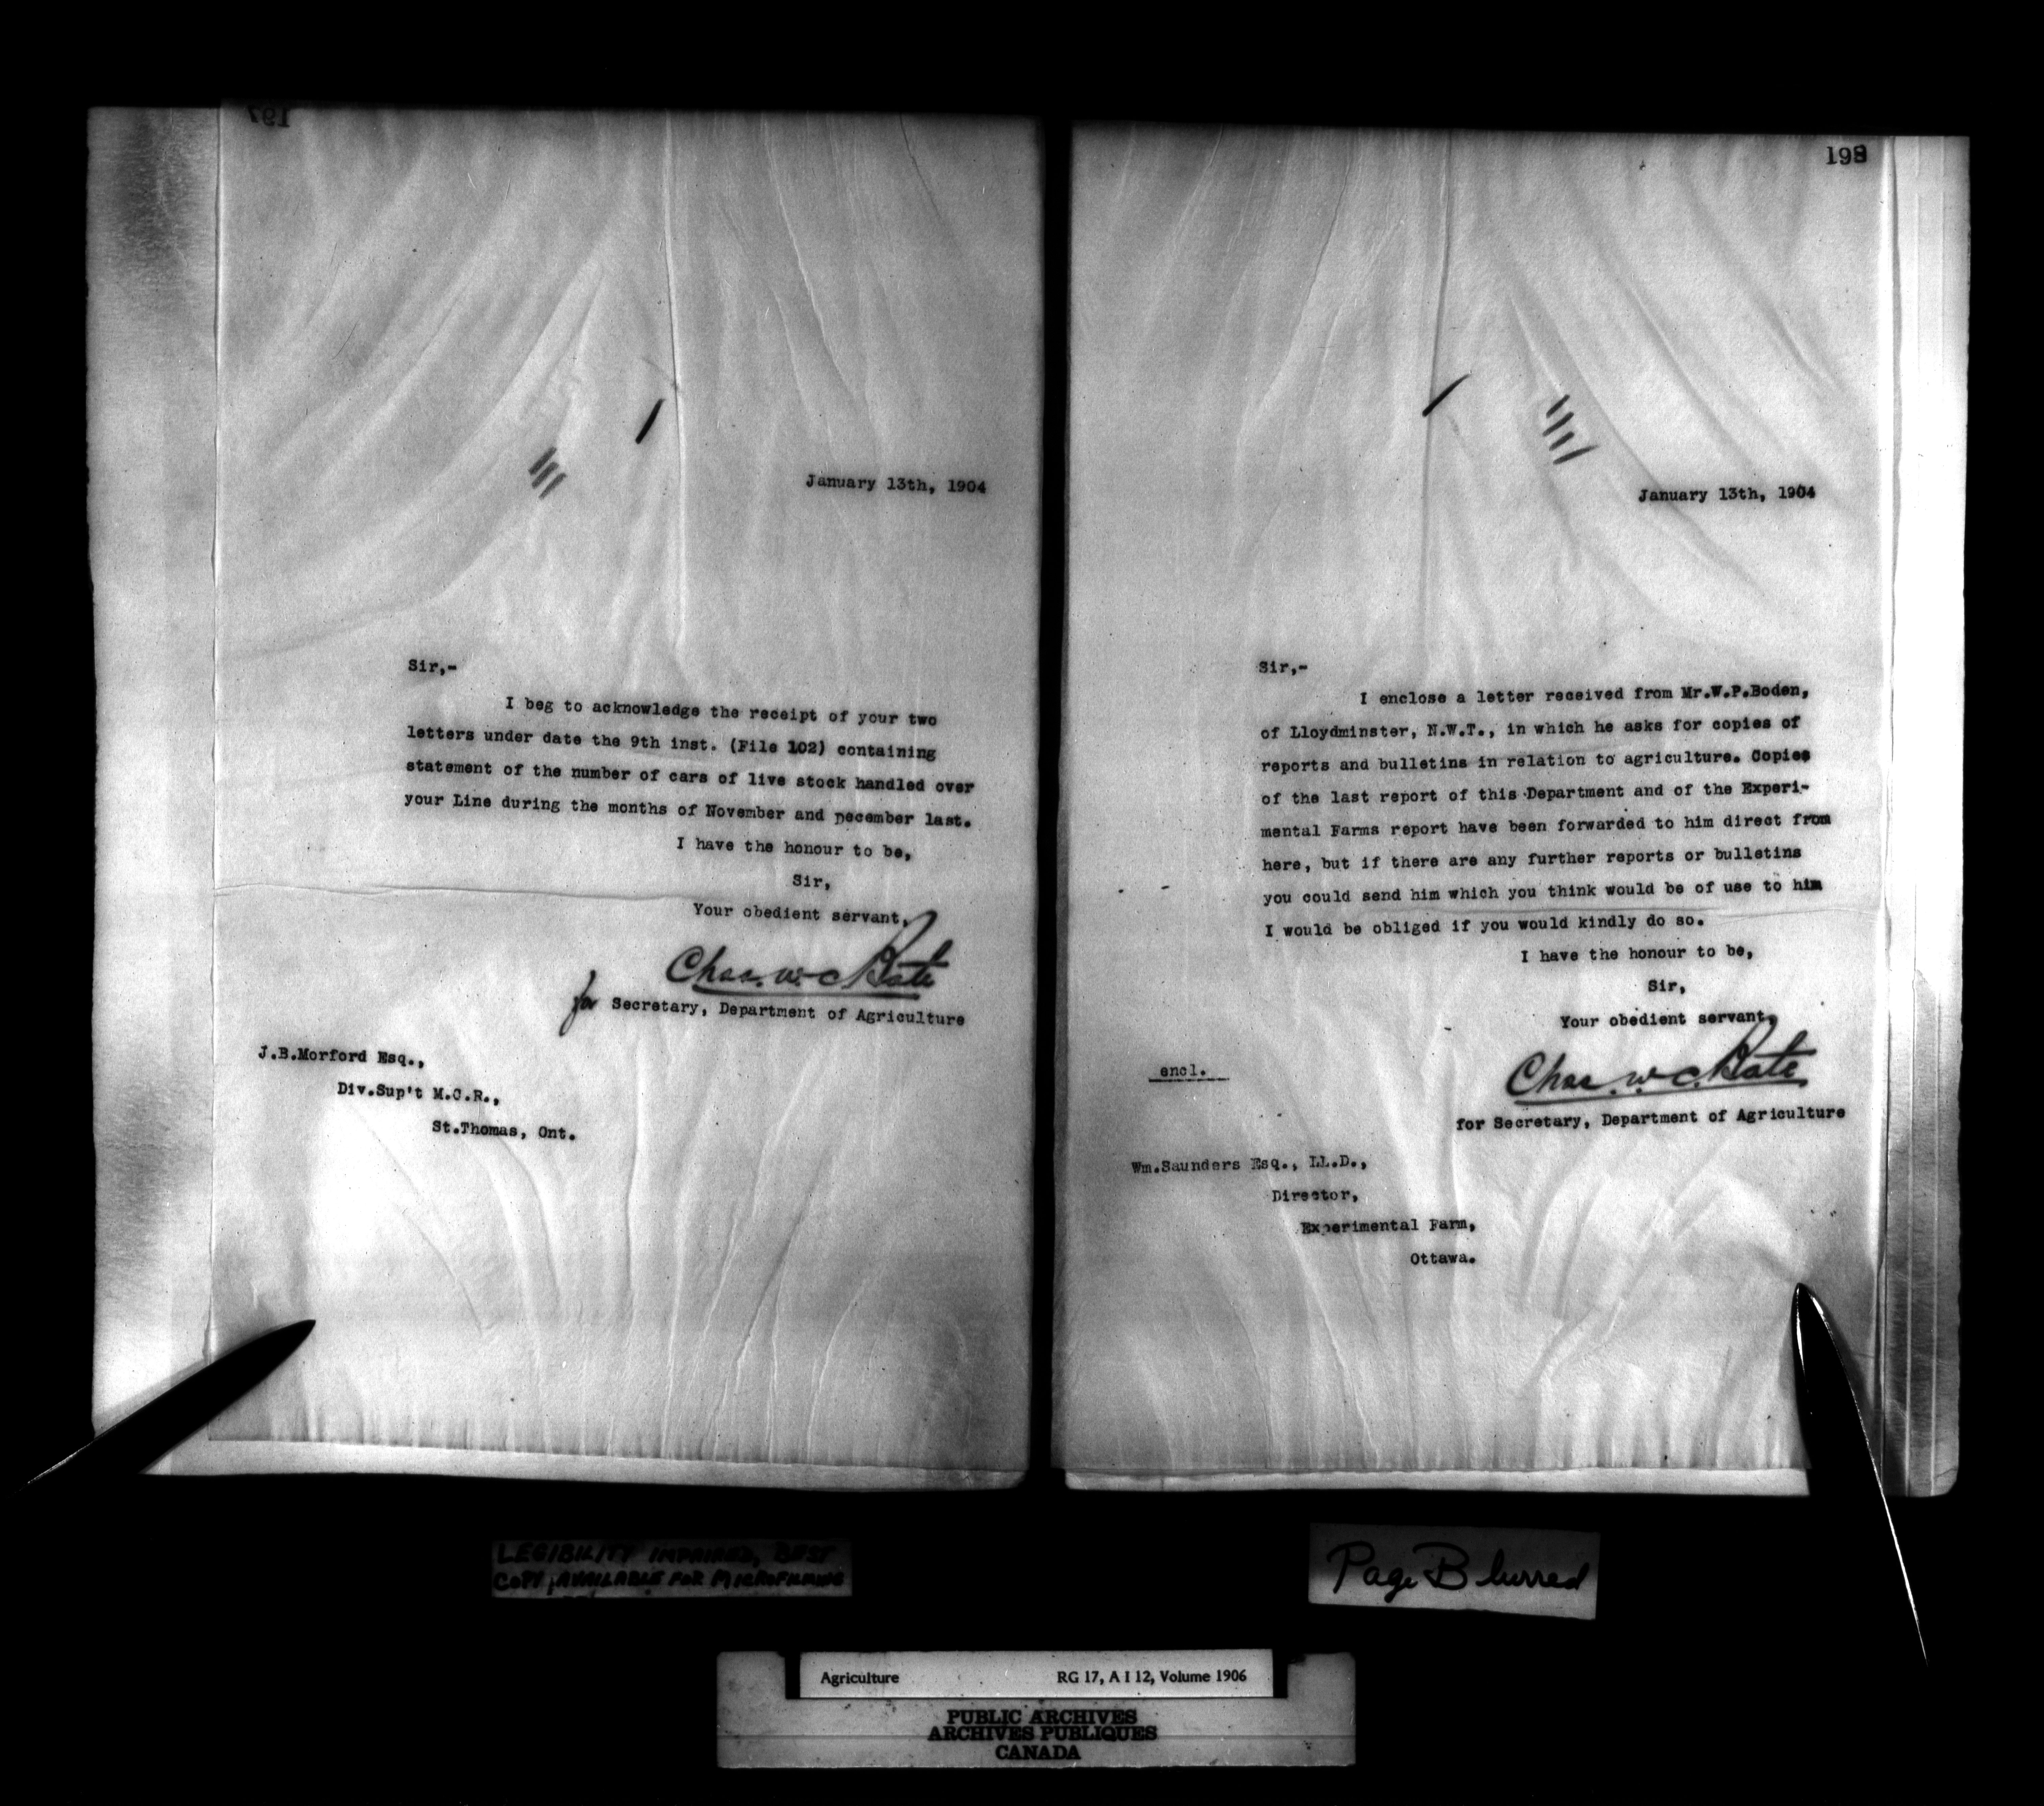 197
January 13th, 1904
Sir,-
I beg to acknowledge the receipt of your two
letters under date the 9th inst. (File 102) containing
statement of the number of cars of live stock handled over
your Line during the months of November and December last.
I have the honour to be,
Sir,
Your obedient servant,
Chas. W. C. Bate
for Secretary, Department of Agriculture
J.B.Morford Esq.,
Div.Sup't M.C.R.,
St.Thomas, Ont.
198
January 13th, 1904
Sir,-
I enclose a letter received from Mr.W.P.Boden,
of Lloydminster, N.W.T., in which he asks for copies of
reports and bulletins in relation to agriculture. Copies
of the last report of this Department and of the Experi-
mental Farms report have been forwarded to him direct from
here, but if there are any further reports or bulletins
you could send him which you think would be of use to him
I would be obliged if you would kindly do so.
I have the honour to be,
Sir,
Your obedient servant,
Chas. W. C. Bate
for Secretary, Department of Agriculture
encl.
Wm.Saunders Esq., LL.D.,
Director,
Experimental Farm,
Ottawa.
LEGIBILITY IMPAIRED, BEST
COPY AVAILABLE FOR MICROFILMING
Page Blurred
Agriculture RG 17, A I 12, Volume 1906
PUBLIC ARCHIVES
ARCHIVES PUBLIQUES
CANADA